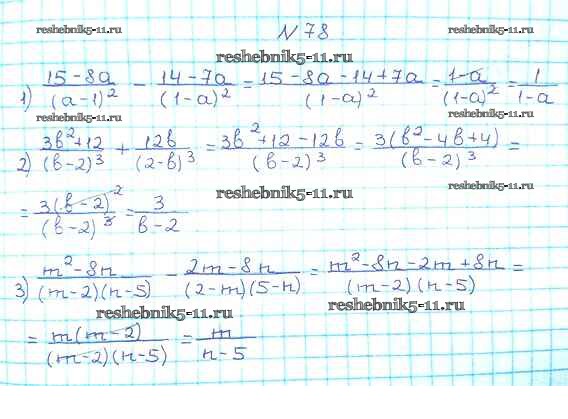 № 78
reshebnik5-11.ru
reshebnik5-11.ru reshebnik5-11.ru
1) (15-8a)/(a-1)² - (14-7a)/(1-a)² = (15-8a-14+7a)/(1-a)² = (1-a)/(1-a)² = 1/(1-a)
reshebnik5-11.ru reshebnik5-11.ru
2) (3b²+12)/(b-2)³ + 12b/(2-b)³ = (3b²+12-12b)/(b-2)³ = 3(b²-4b+4)/(b-2)³ =
reshebnik5-11.ru reshebnik5-11.ru
= 3(b-2)²/(b-2)³ = 3/(b-2)
3) (m²-8n)/((m-2)(n-5)) - (2m-8n)/((2-m)(5-n)) = (m²-8n-2m+8n)/((m-2)(n-5)) =
reshebnik5-11.ru reshebnik5-11.ru
= m(m-2)/((m-2)(n-5)) = m/(n-5)
reshebnik5-11.ru